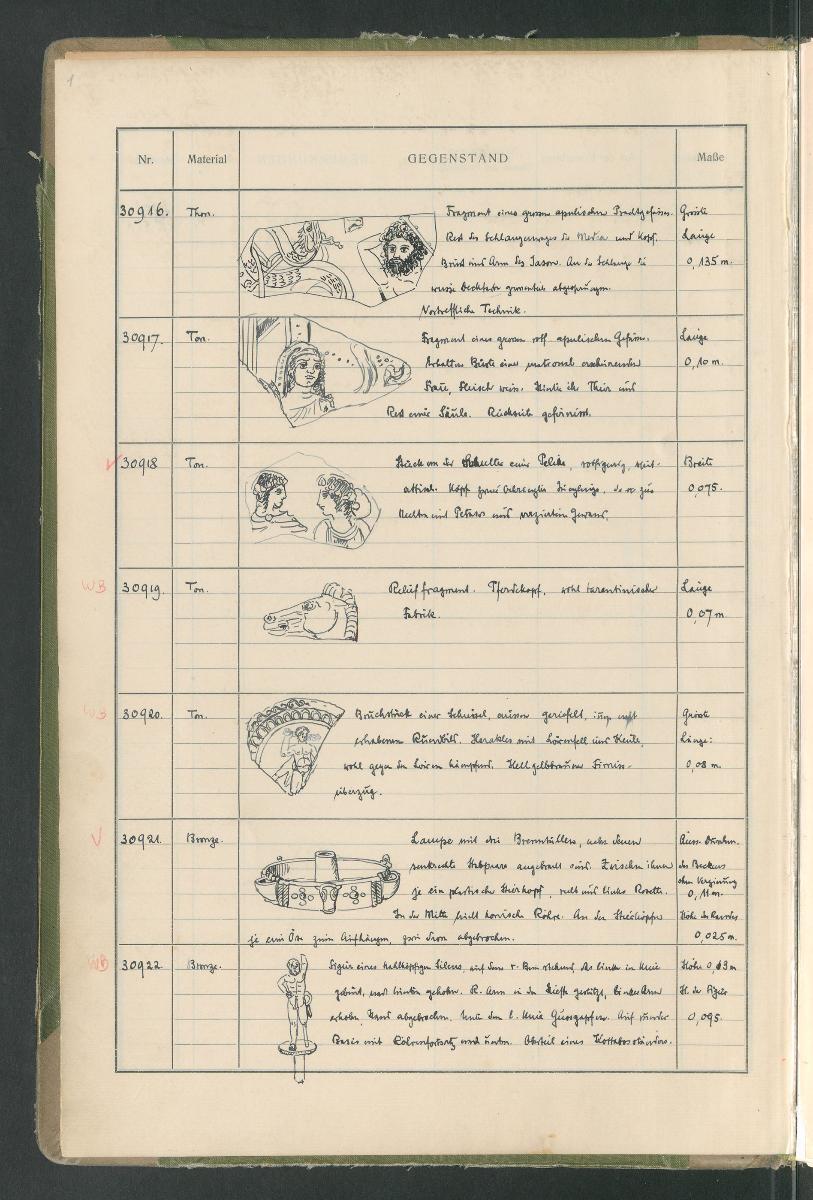 1
Nr. Material GEGENSTAND Maße
30916. Thon. Fragment eines grossen apulischen Prachtgefässes. Grösste
Rest des Schlangenwagens der Medea und Kopf, Länge
Brust und Arm des Jason. An der Schlange die 0,135 m.
weisse Deckfarbe grossenteils abgesprungen.
Vortreffliche Technik.
30917. Ton. Fragment eines grossen rotf. apulischen Gefässes. Länge
Erhalten Büste einer erscheinenden 0,10 m.
Frau, Fleisch weiss. Hinter ihr Thür und
Rest einer Säule. Rückseite gefirnisst.
V 30918 Ton. Stück von der Schulter einer Pelike, rotfigurig, Breite
attisch. Kopf zweier Jünglinge, der zur 0,075.
Rechten mit Petasos und verziertem Gewand.
WB 30919. Ton. Relieffragment. Pferdekopf, wohl tarantinischer Länge
Fabrik. 0,07 m
WB 30920. Ton. Bruchstück einer Schüssel, aussen geriefelt, innen mit Grösste
erhabenem Rundbild. Herakles mit Löwenfell und Keule, Länge:
wohl gegen den Löwen kämpfend. Hellgelbbrauner Firniss- 0,08 m.
überzug.
V 30921. Bronze. Lampe mit drei Brenntüllen, neben denen Äuss. Durchm.
senkrechte Stabpaare angebracht sind. Zwischen ihnen des Beckens
je ein plastischer Stierkopf, rechts und links Rosette. ohne Verzierung
0,11 m.
In der Mitte leicht konische Röhre. An den Stierköpfen Höhe des Randes
je eine Öse zum Aufhängen, zwei davon abgebrochen. 0,025 m.
WB 30922. Bronze. Figur eines kahlköpfigen Silens, auf dem r. Bein stehend, das linke im Knie Höhe 0,13 m
gebeugt, nach hinten gehoben. R. Arm in die Hüfte gestützt, linker Arm H. der Figur
erhoben, Hand abgebrochen. Unter dem l. Knie Gusszapfen. Auf runder 0,095.
Basis mit Röhrenfortsatz nach unten. Oberteil eines Kottabosständers.